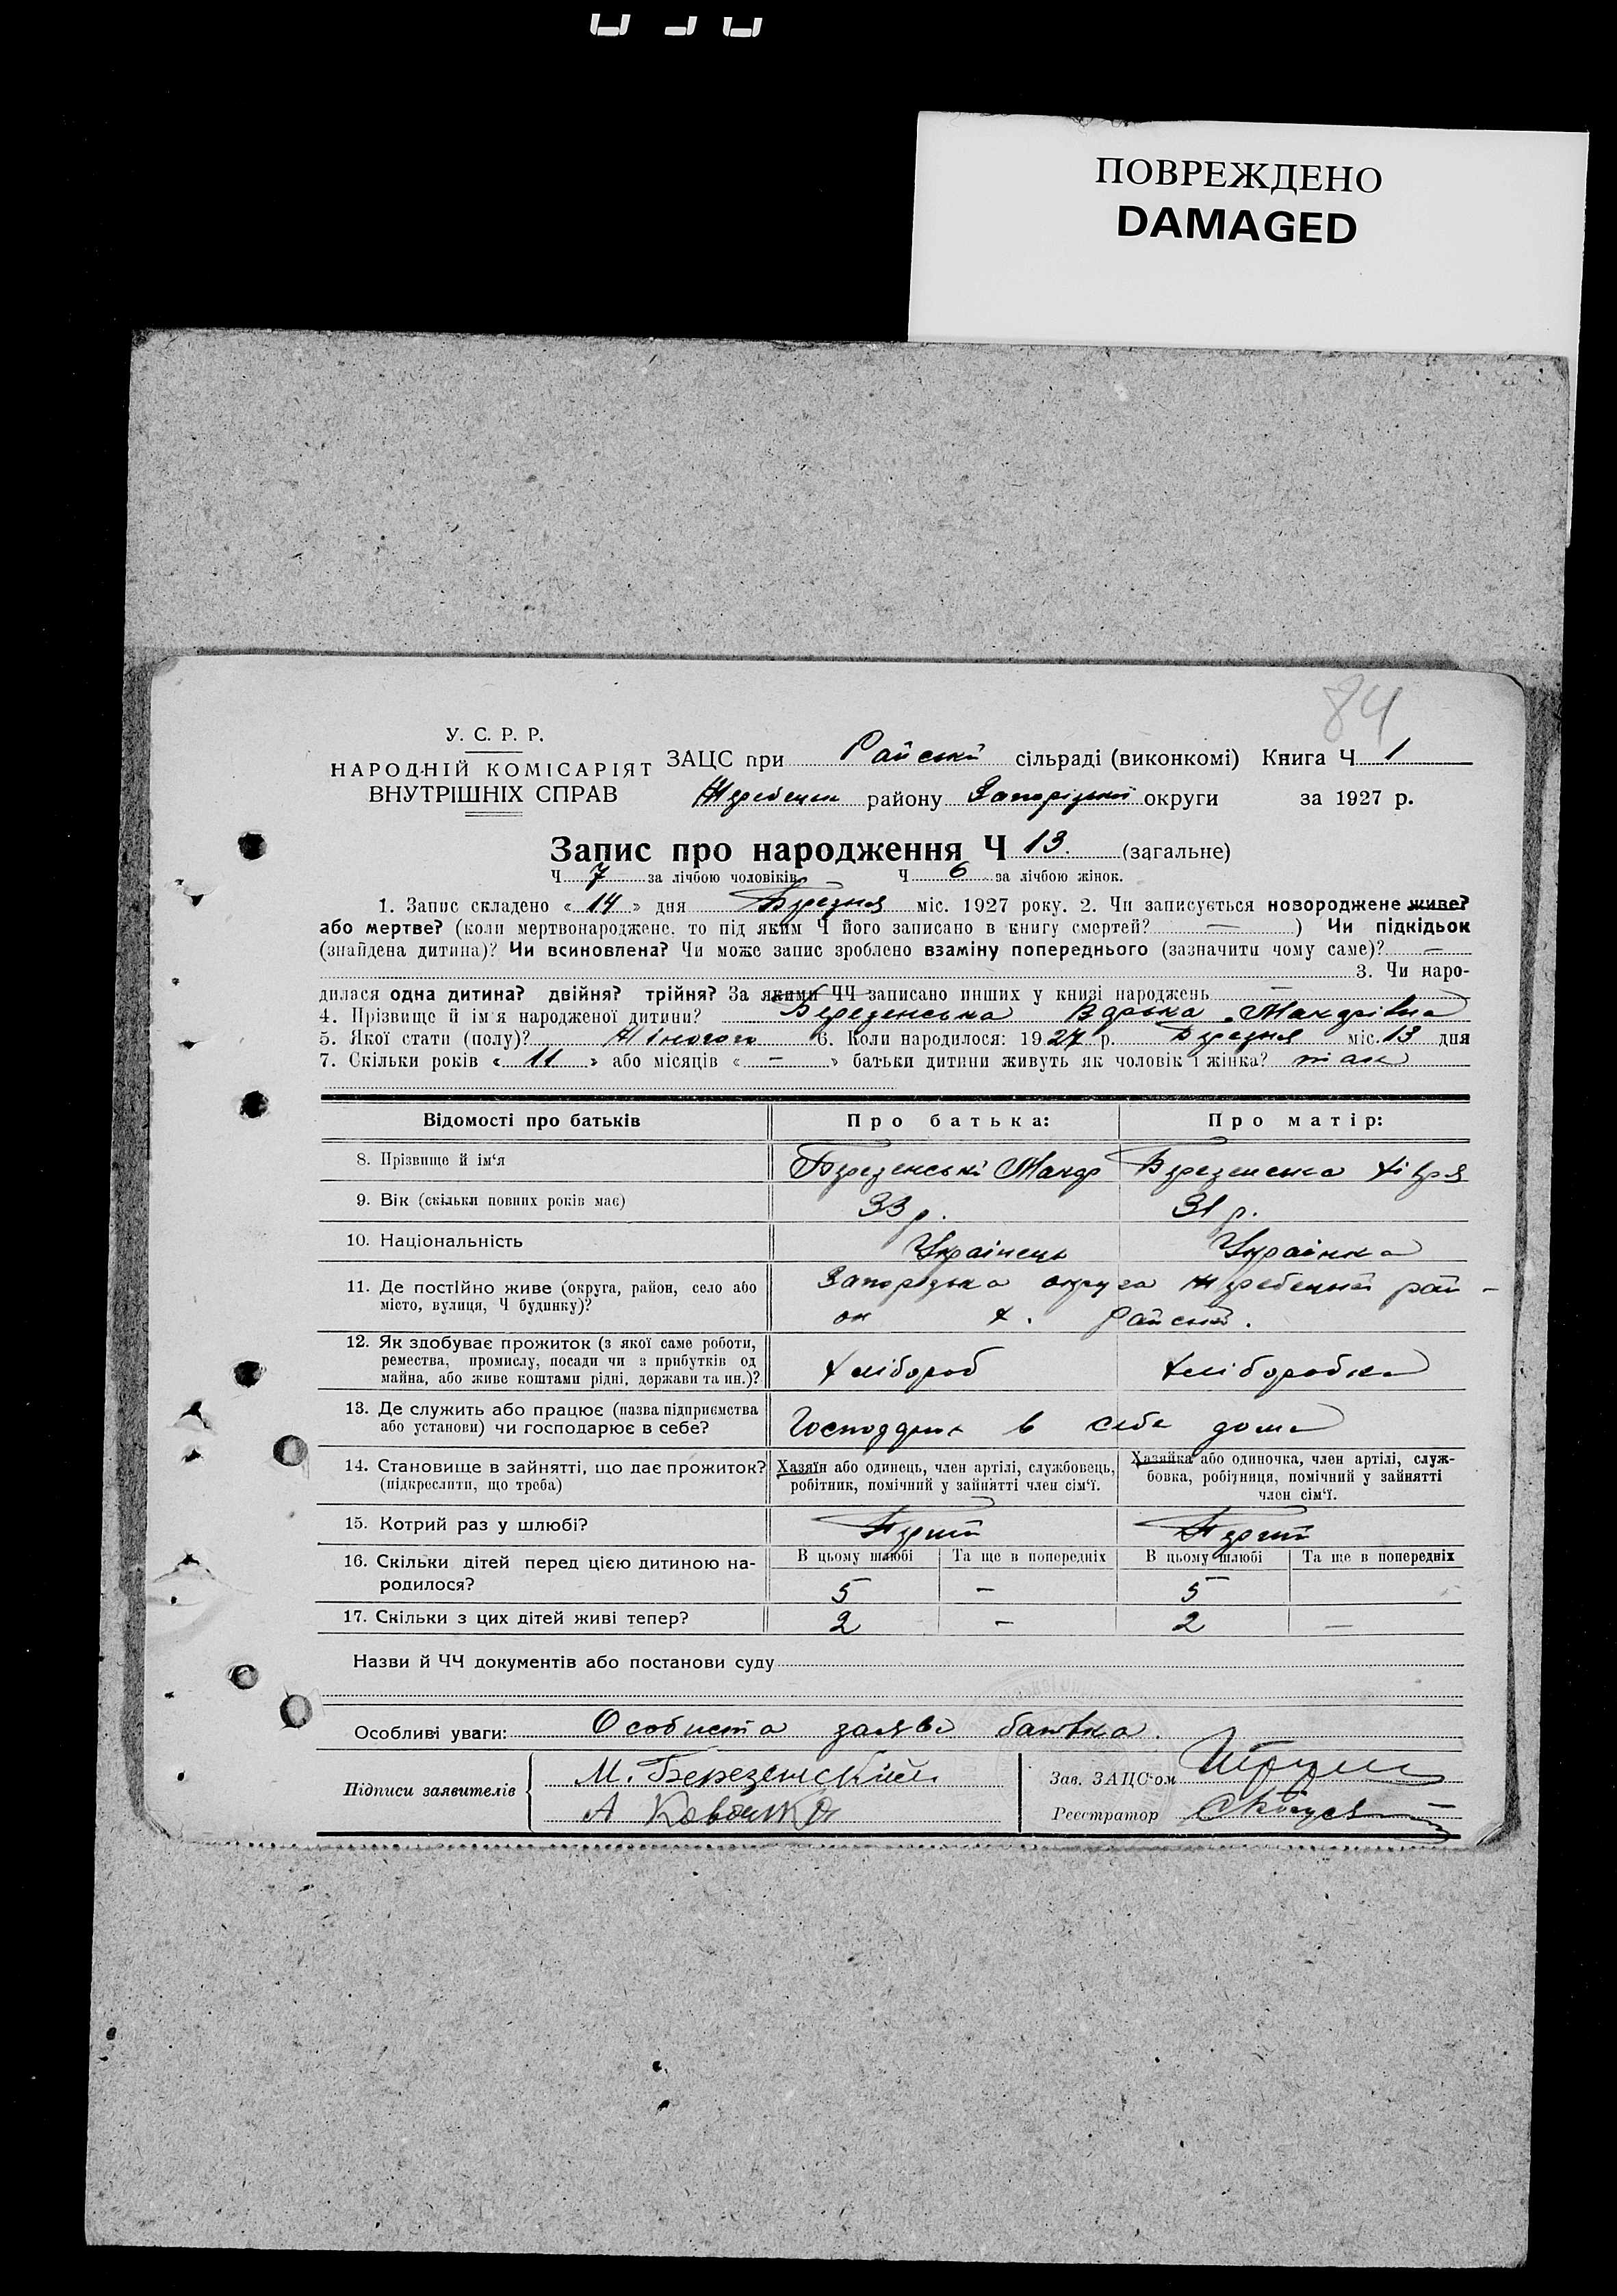 ПОВРЕЖДЕНО
DAMAGED
84
У. С. Р. Р.
НАРОДНІЙ КОМІСАРІЯТ
ВНУТРІШНІХ СПРАВ
ЗАЦС при Райській сільраді (виконкомі) Книга Ч 1
району Запорізької округи за 1927 р.
Запис про народження Ч 13. (загальне)
Ч 7 за лічбою чоловіків Ч 6 за лічбою жінок.
1. Запис складено « 14 » дня Березня міс. 1927 року. 2. Чи записується новороджене живе?
або мертве? (коли мертвонароджене, то під яким Ч його записано в книгу смертей? — ) Чи підкідьок
(знайдена дитина)? Чи всиновлена? Чи може запис зроблено взаміну попереднього (зазначити чому саме)? —
3. Чи наро-
дилася одна дитина? двійня? трійня? За якими ЧЧ записано инших у книзі народжень —
4. Прізвище й ім'я народженої дитини? Березенська Варька Макарівна
5. Якої стати (полу)? Жіночого 6. Коли народилося: 1927 р. Березня міс. 13 дня
7. Скільки років « 11 » або місяців « — » батьки дитини живуть як чоловік і жінка? так
Відомості про батьків Про батька: Про матір:
8. Прізвище й ім'я Березенські Макар Березенська Хівря
9. Вік (скільки повних років має) 33 р. 31 р.
10. Національність Українець Українка
11. Де постійно живе (округа, район, село або Запорізька округа Жеребецький рай-
місто, вулиця, Ч будинку)? он х. Райський.
12. Як здобуває прожиток (з якої саме роботи,
ремества, промислу, посади чи з прибутків од
майна, або живе коштами рідні, держави та ин.)? Хлібороб Хліборобка
13. Де служить або працює (назва підприємства
або установи) чи господарює в себе? в себе дома
14. Становище в зайнятті, що дає прожиток?
(підкреслити, що треба)
Хазяїн або одинець, член артілі, службовець,
робітник, помічний у зайнятті член сім'ї.
Хазяйка або одиночка, член артілі, служ-
бовка, робітниця, помічний у зайнятті
член сім'ї.
15. Котрий раз у шлюбі? Перший Перший
16. Скільки дітей перед цією дитиною на-
родилося?
В цьому шлюбі Та ще в попередніх В цьому шлюбі Та ще в попередніх
5 — 5
17. Скільки з цих дітей живі тепер? 2 — 2 —
Назви й ЧЧ документів або постанови суду
Особливі уваги: Особиста заява батька.
Підписи заявителів М. Березенский
А
Зав. ЗАЦС'ом
Реєстратор